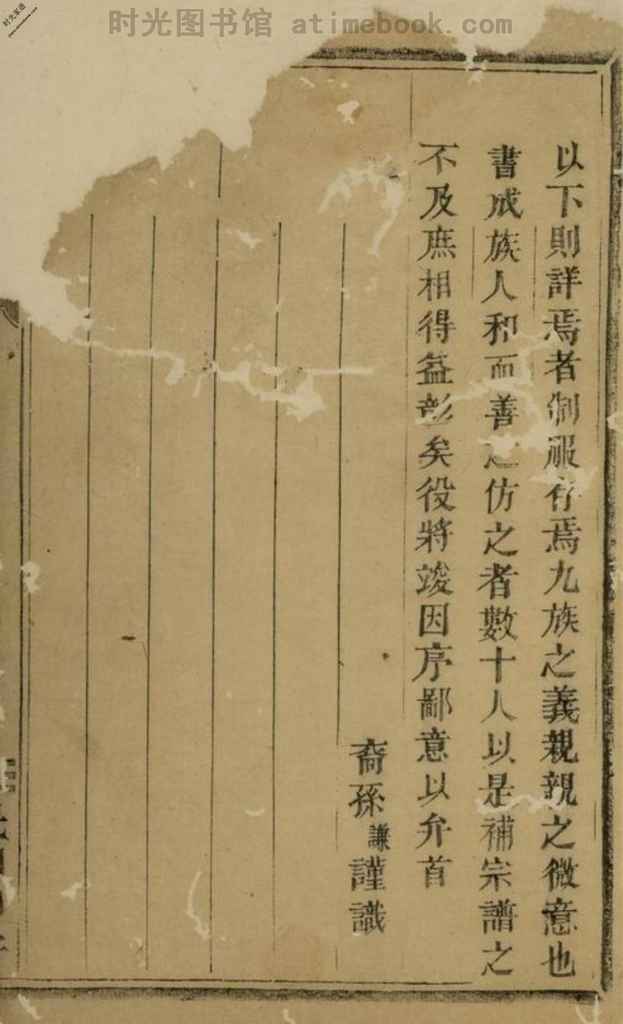 时光图书馆 atimebook.com
以下則詳焉者制服存焉九族之義親親之微意也
書成族人和而善之仿之者數十人以是補宗譜之
不及庶相得益彰矣役將竣因序鄙意以弁首
裔孫謙謹識